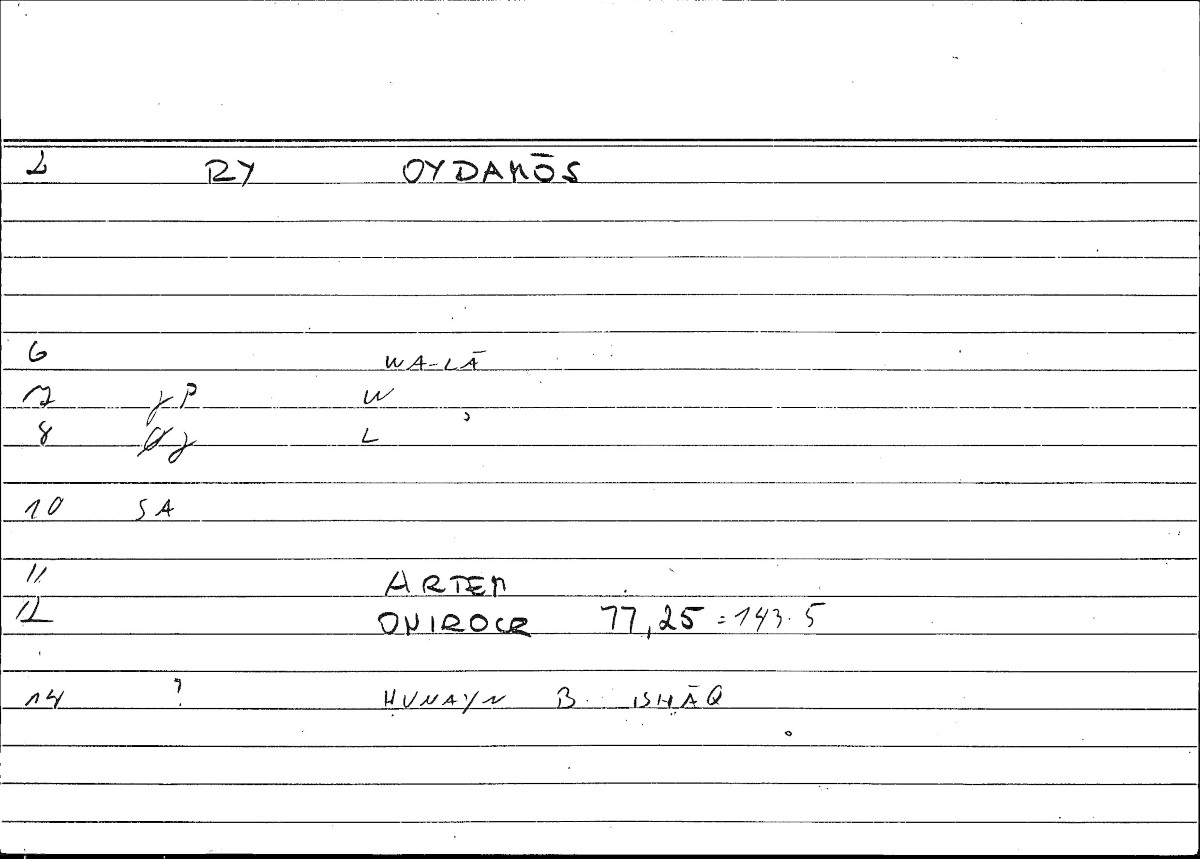 1 RY OYDAMŌS
6 WA-LĀ
7 γP W
8 γ L
10 SA
11 ARTEM
12 ONIROCR 77,25 = 143.5
14 ? ḤUNAYN B. ISḤĀQ